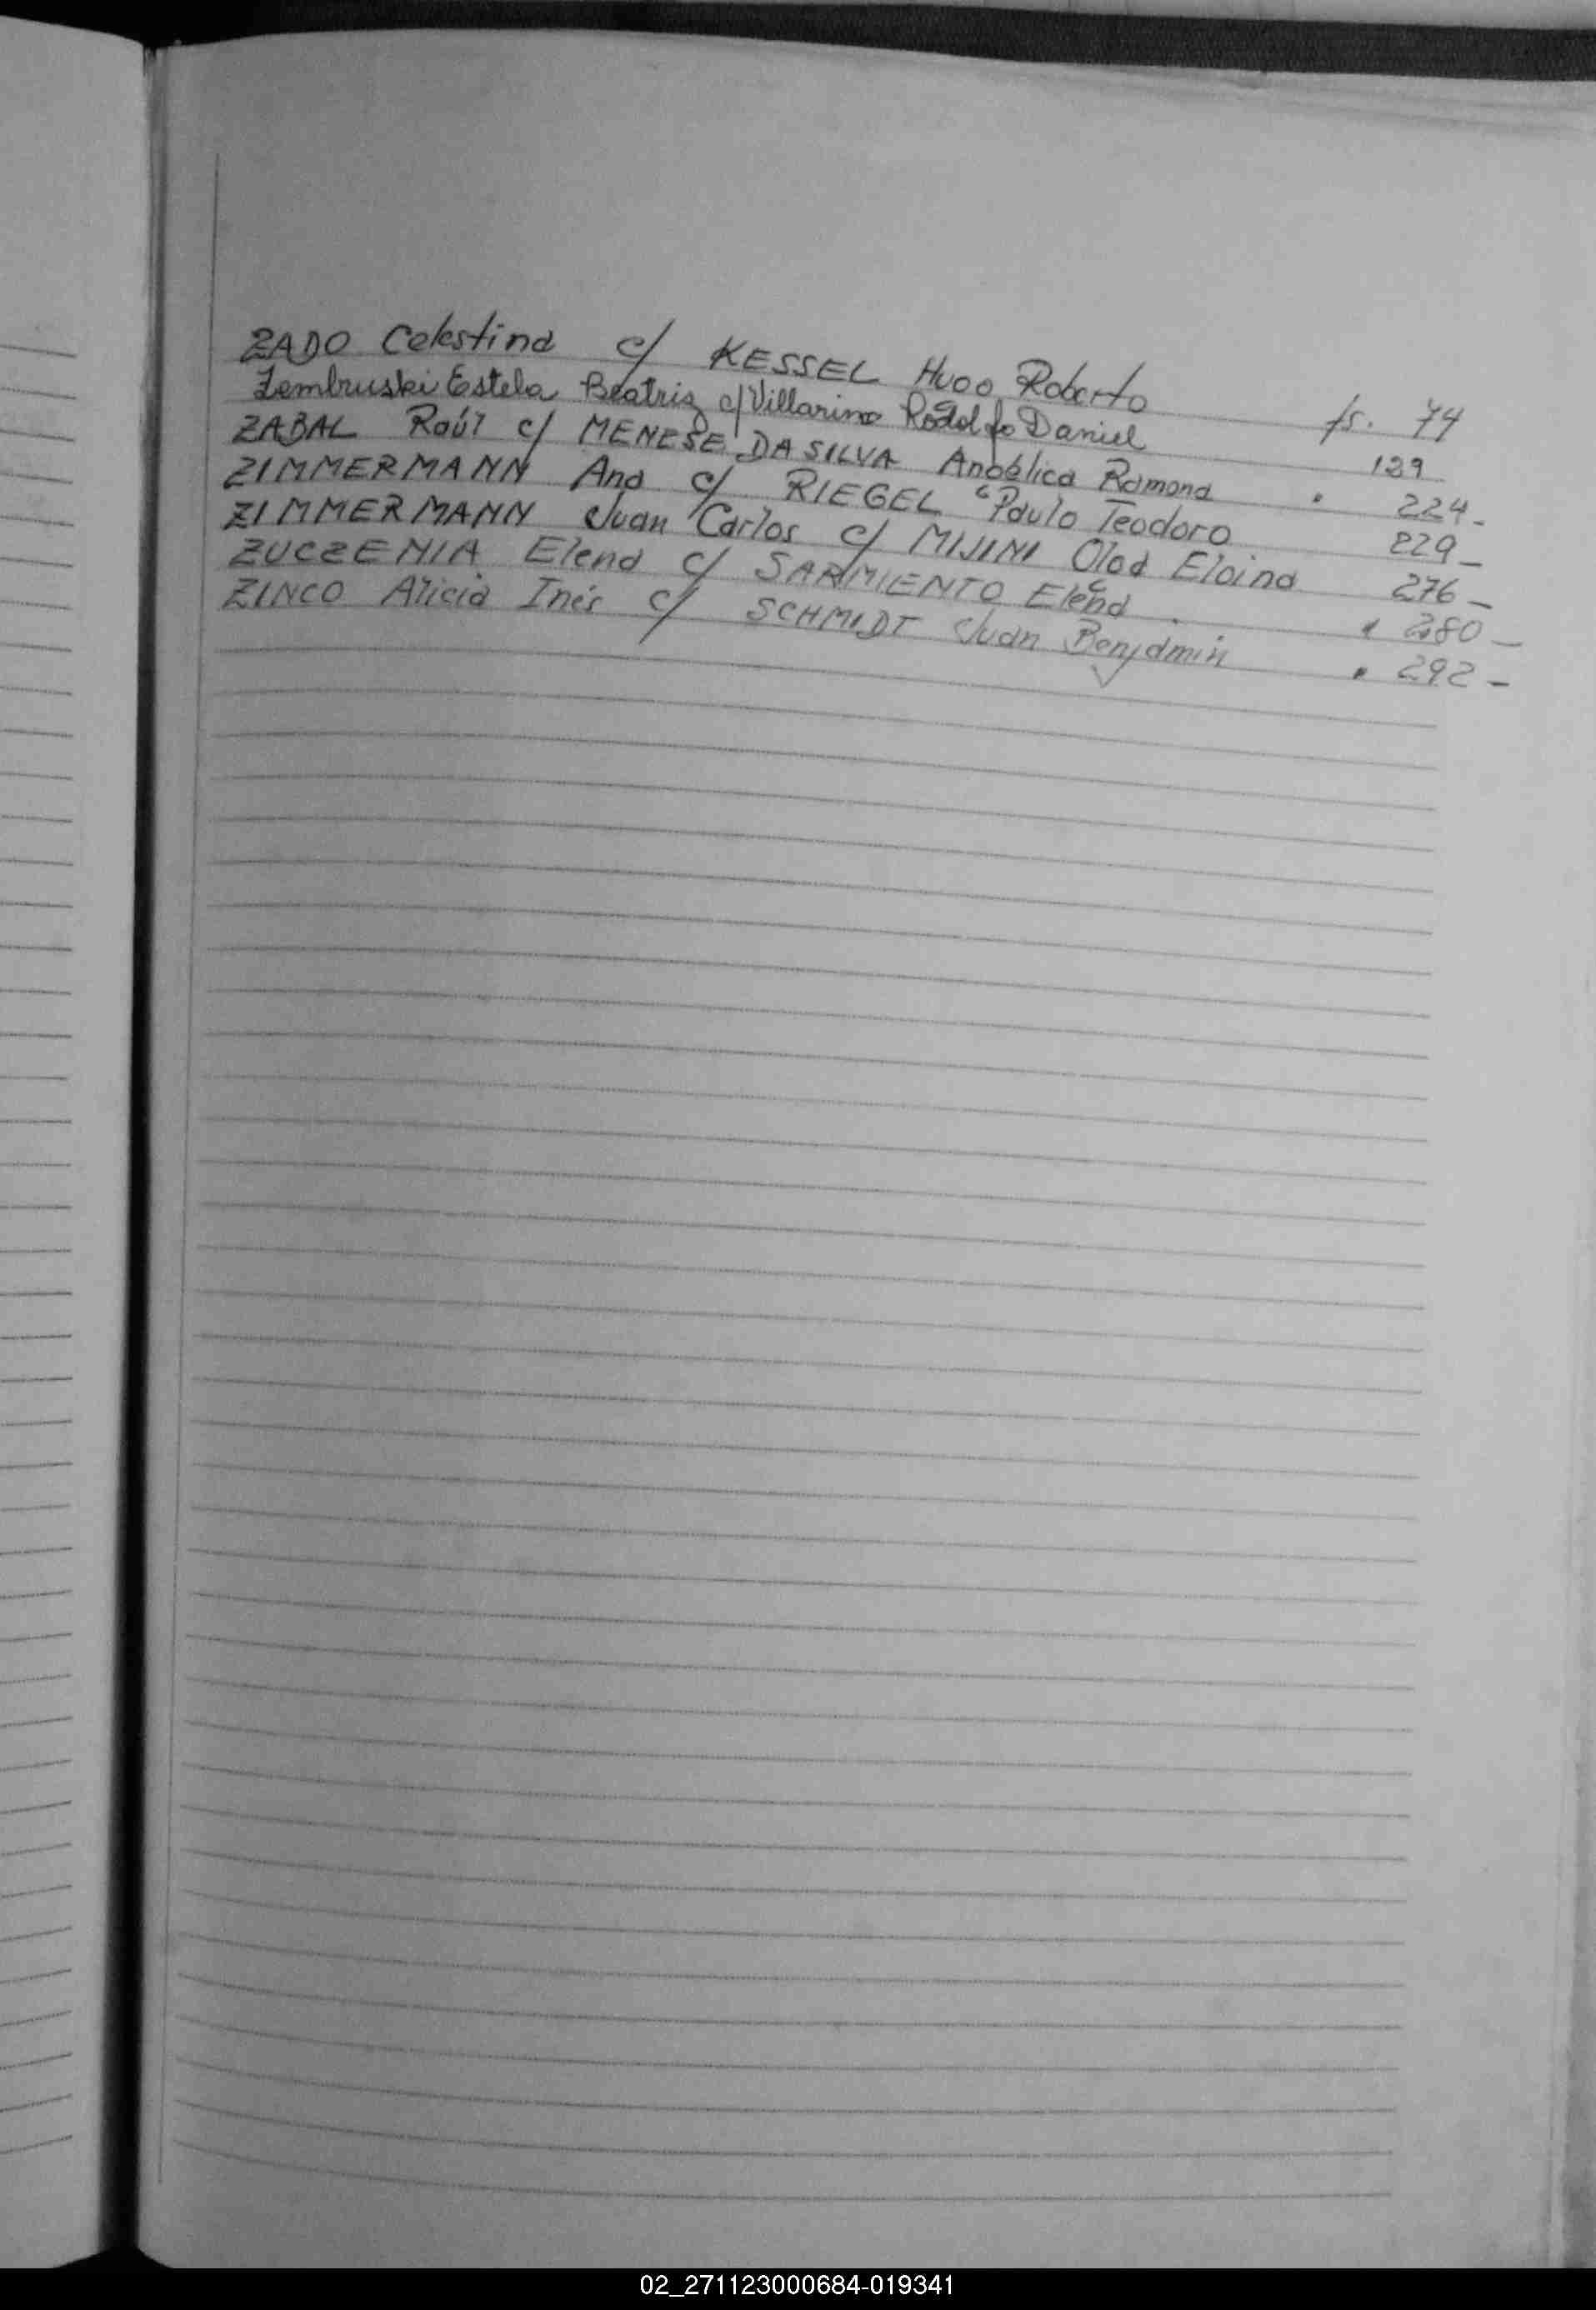 ZADO Celestina c/ KESSEL Hugo Roberto fs. 74
Zembruski Estela Beatriz c/ Villarino Rodolfo Daniel 129
ZABAL Raúl c/ MENESE DA SILVA Angélica Ramona " 224-
ZIMMERMANN Ana c/ RIEGEL Paulo Teodoro 229-
ZIMMERMANN Juan Carlos c/ MIJINI Olga Eloina 276-
ZUCZENIA Elena c/ SARMIENTO Elena " 280-
ZINCO Alicia Inés c/ SCHMIDT Juan Benjamin " 292-
02_271123000684-019341